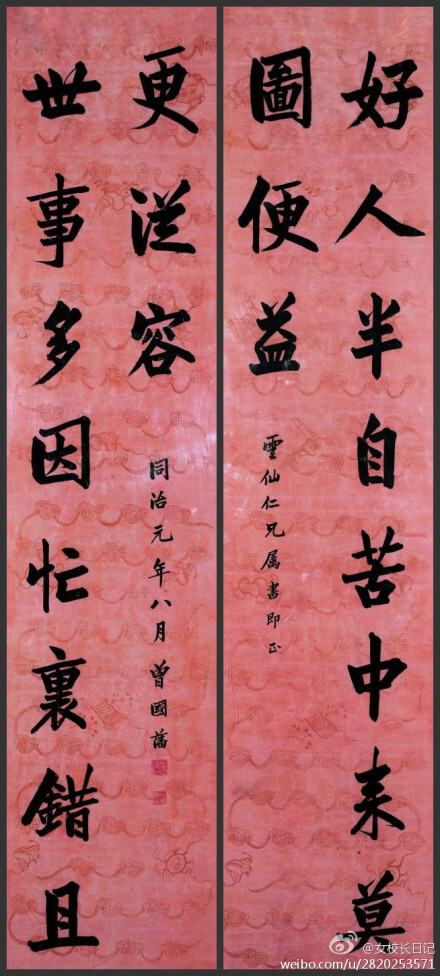 好人半自苦中来莫
圖便益
雲仙仁兄属書即正
世事多因忙裏錯且
更從容
同治元年八月曾國藩
@女校长日记
weibo.com/u/2820253571